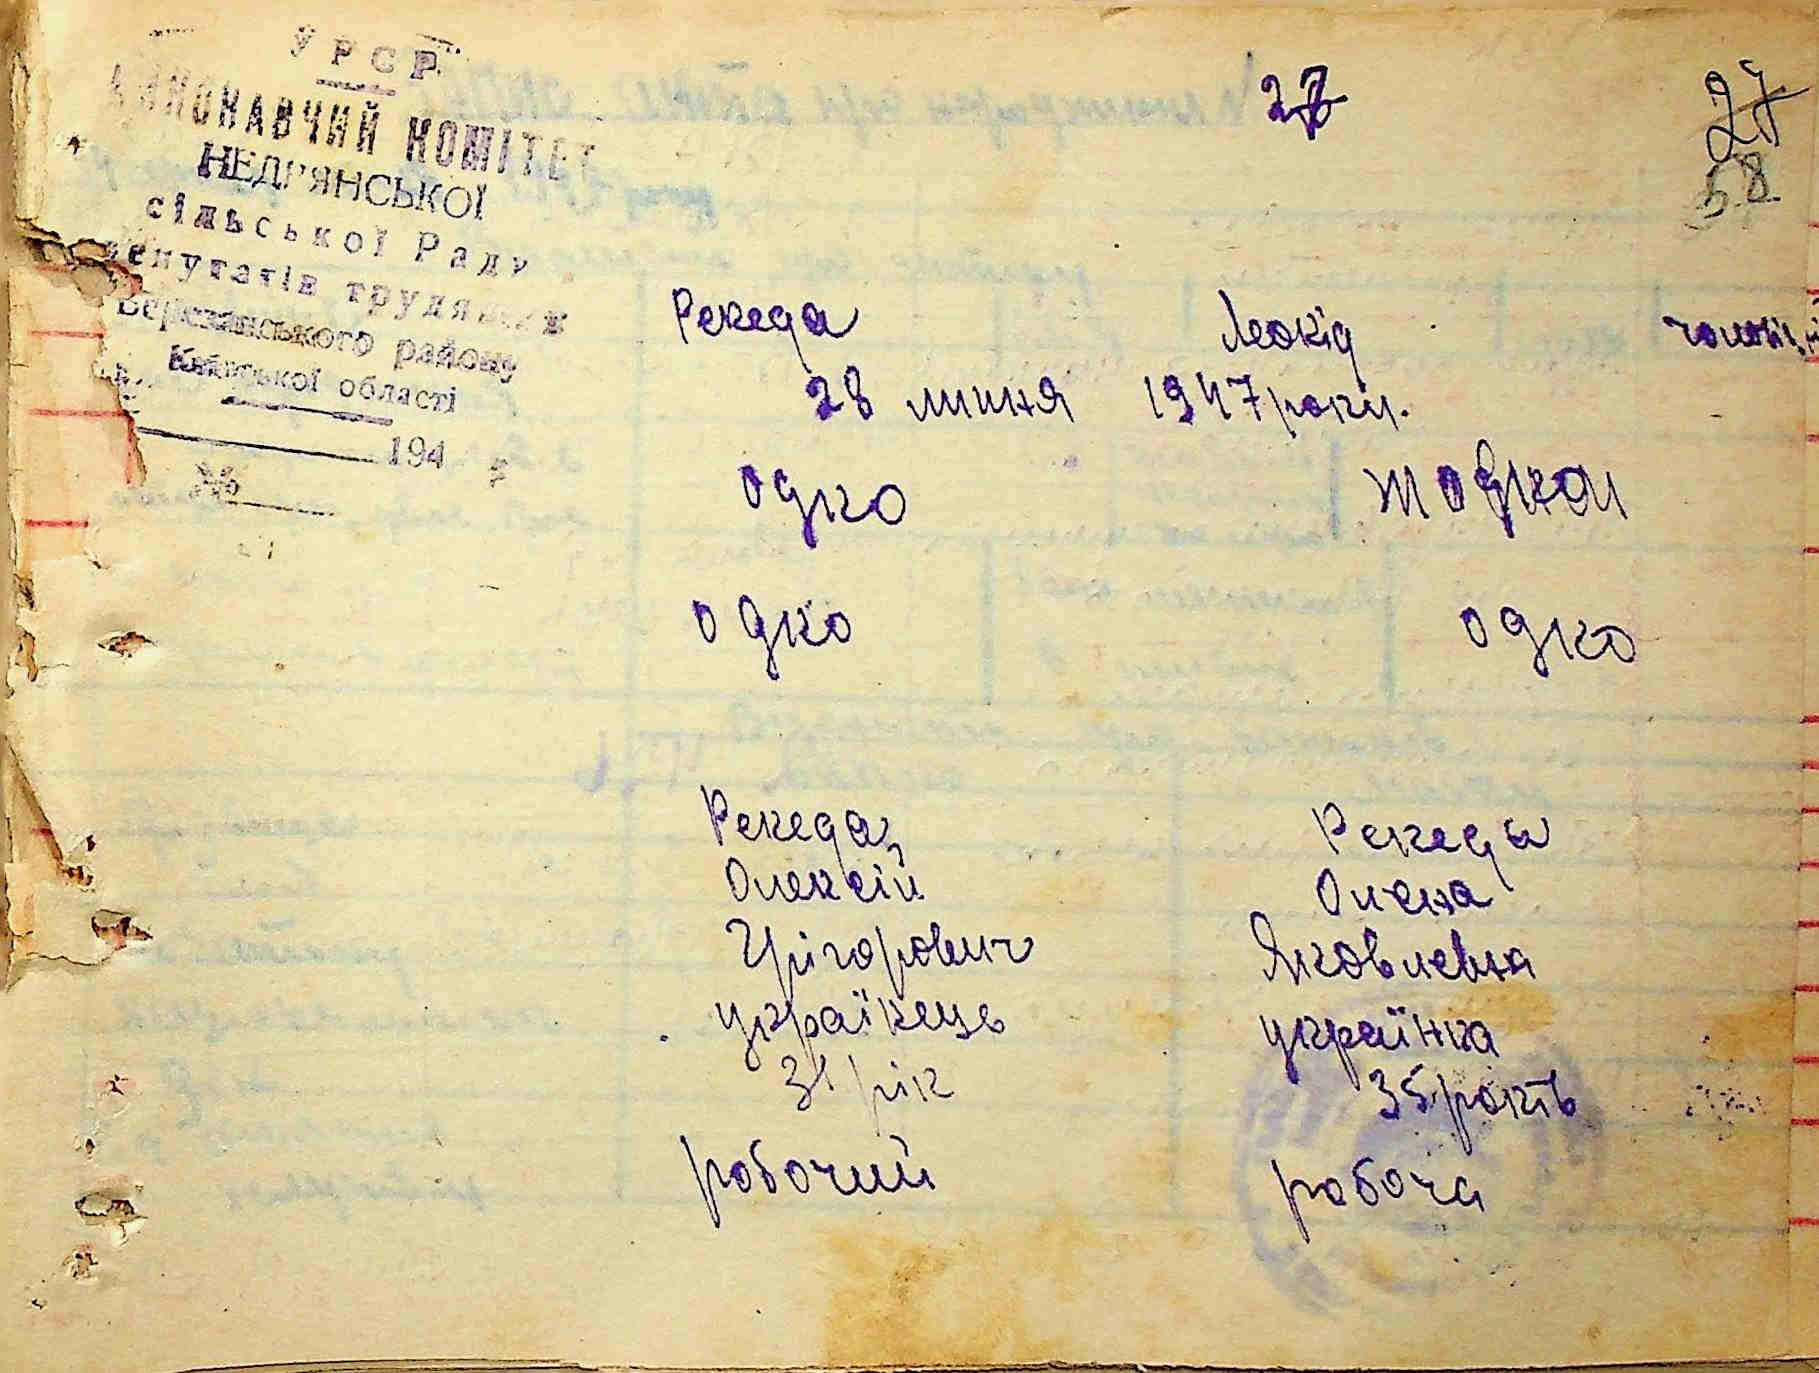 УРСР
ВИКОНАВЧИЙ КОМІТЕТ
НЕДР'ЯНСЬКОЇ
сільської Ради
депутатів трудящих
Березанського району
Київської області
194 р
№
27
27
58
Рекеда Леокід чоловіч
28 липня 1947 року.
одко
одко одко
Рекеда Рекеда
Олексій Олена
Грігорович Яковлевна
українець українка
31 рік 35 років
робочий робоча